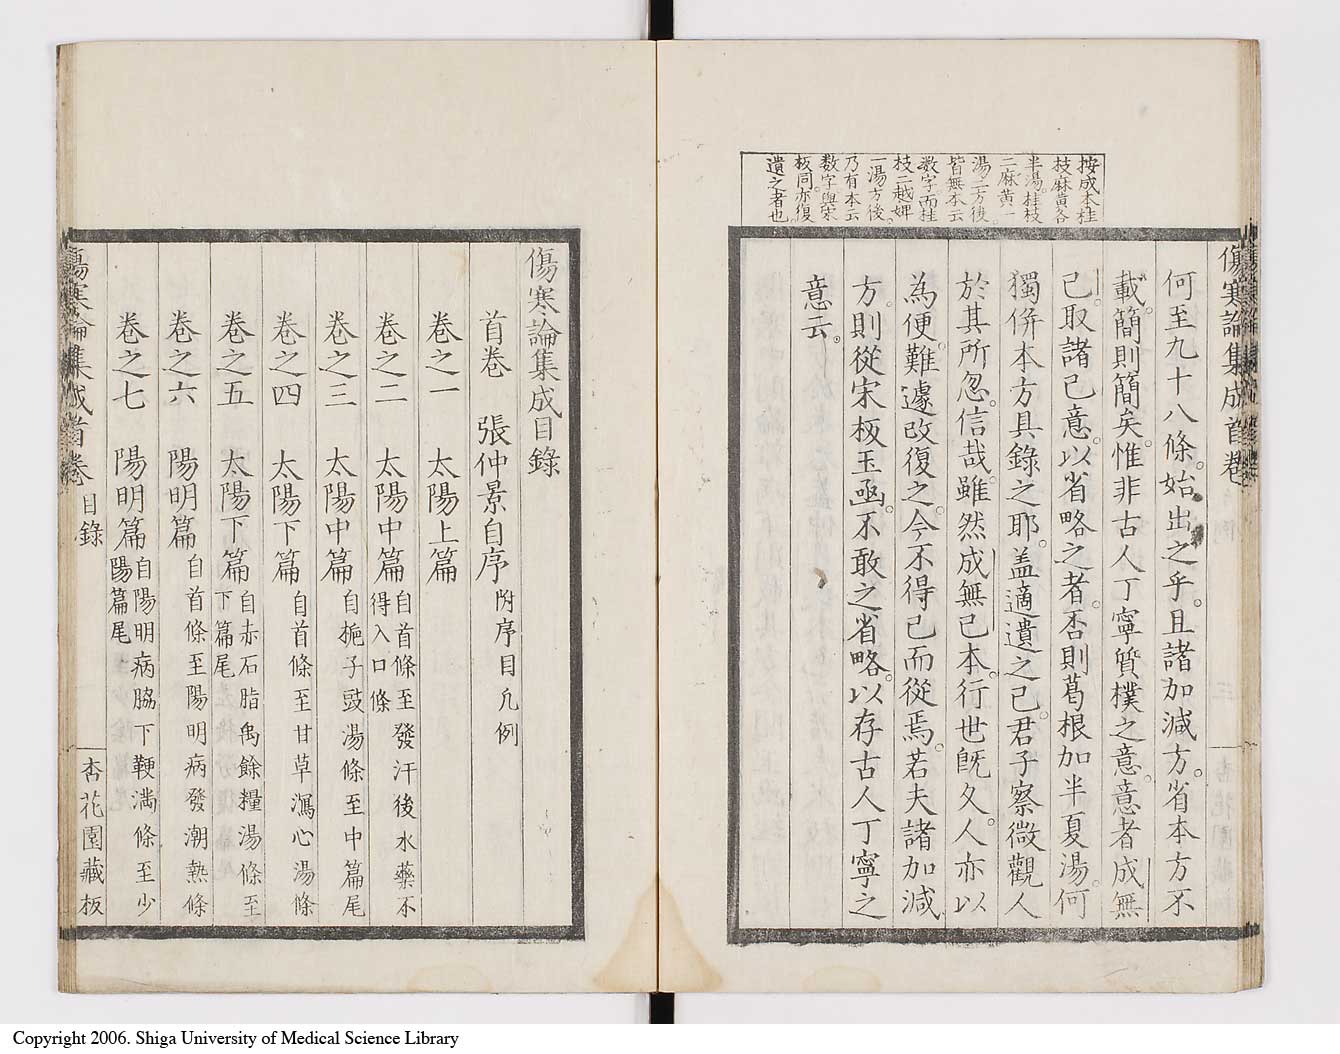 按成本桂
枝麻黃各
半湯。桂枝
二麻黃一
湯。二方後。
皆無本云
数字。而桂
枝二越婢
一湯方後。
乃有本云
数字。與宋
板同。亦復
遺之者也
傷寒論集成首卷
何至九十八條。始出之乎。且諸加減方。省本方不
載。簡則簡矣。惟非古人丁寧質樸之意。意者成無
己。取諸己意。以省略之者。否則葛根加半夏湯。何
獨併本方具錄之耶。蓋適遺之已。君子察微觀人
於其所忽。信哉。雖然成無己本。行世既久。人亦以
為便。難遽改復之。今不得已而從焉。若夫諸加減
方。則從宋板玉函。不敢之省略。以存古人丁寧之
意云。
傷寒論集成目錄
首卷 張仲景自序 附序目凡例
卷之一 太陽上篇
卷之二 太陽中篇 自首條至發汗後水藥不得入口條
卷之三 太陽中篇 自梔子豉湯條至中篇尾
卷之四 太陽下篇 自首條至甘草瀉心湯條
卷之五 太陽下篇 自赤石脂禹餘糧湯條至下篇尾
卷之六 陽明篇 自首條至陽明病發潮熱條
卷之七 陽明篇 自陽明病脇下鞕満條至少陽篇尾
傷寒論集成首卷 目錄
杏花園藏板
Copyright 2006. Shiga University of Medical Science Library